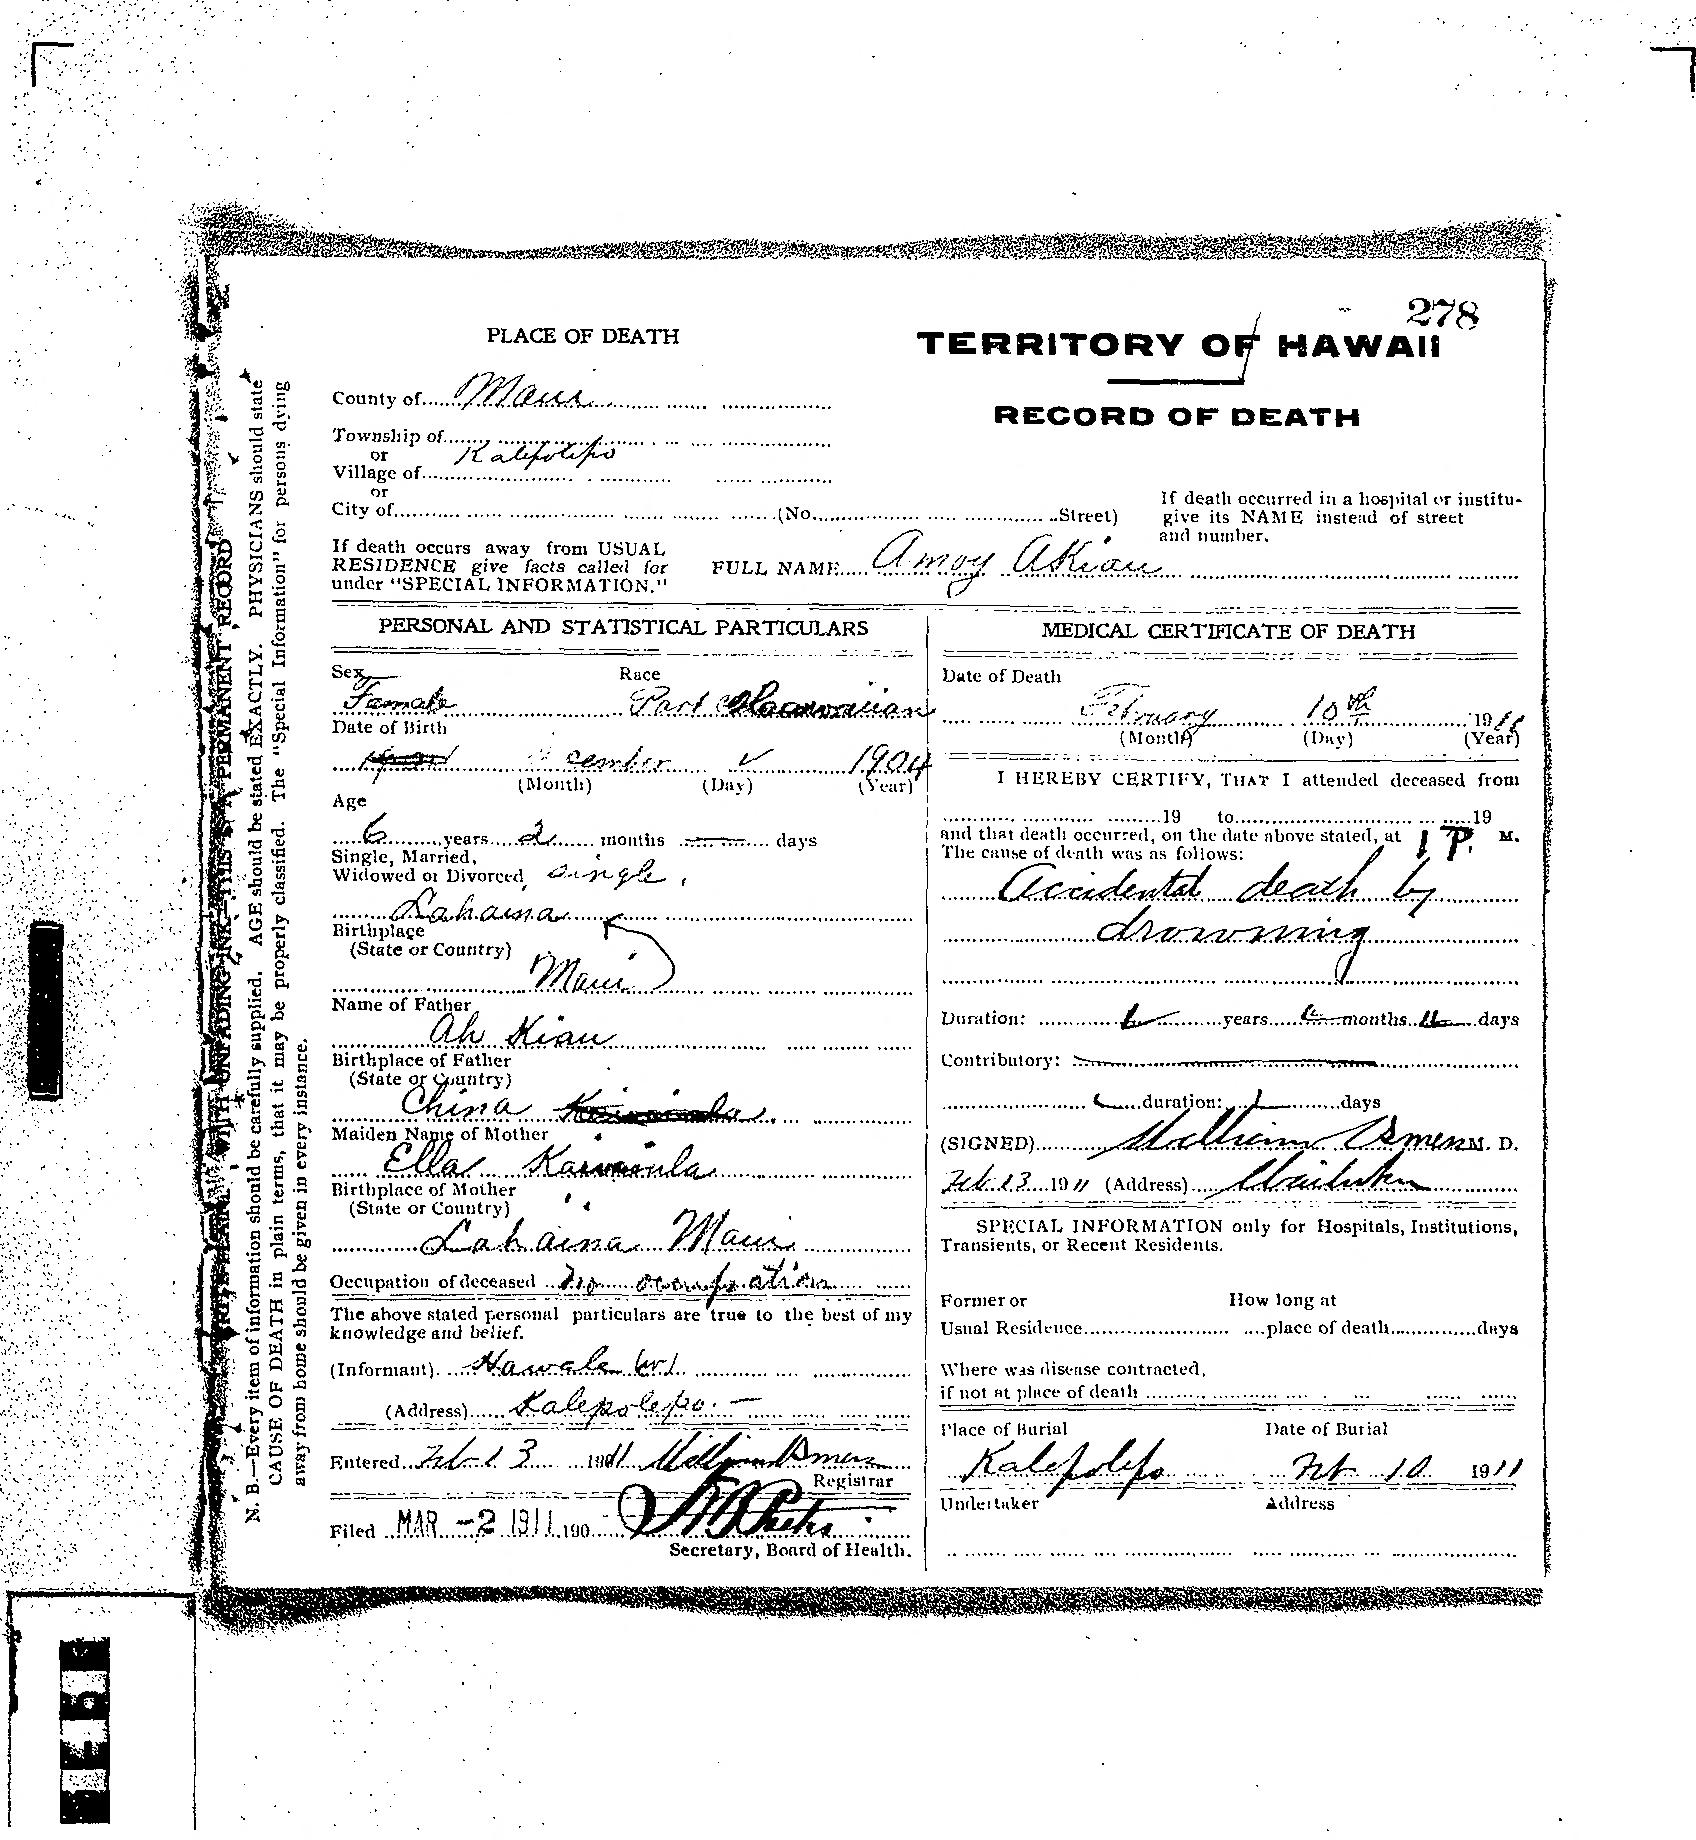 278
PLACE OF DEATH
TERRITORY OF HAWAII
RECORD OF DEATH
County of Maui
Township of
or
Kalepolepo
Village of
or
City of (No. Street)
If death occurred in a hospital or institu-
give its NAME instead of street
and number.
If death occurs away from USUAL
RESIDENCE give facts called for
under "SPECIAL INFORMATION."
FULL NAME Amoy Akiau
PERSONAL AND STATISTICAL PARTICULARS
Sex Race
Female Part Hawaiian
Date of Birth
cember 1904
(Month) (Day) (Year)
Age
6 years 2 months days
Single, Married,
Widowed or Divorced, single.
Lahaina
Birthplace
(State or Country)
Maui
Name of Father
Ah Kiau
Birthplace of Father
(State or Country)
China
Maiden Name of Mother
Ella
Birthplace of Mother
(State or Country)
Lahaina Maui
Occupation of deceased no occupation
The above stated personal particulars are true to the best of my
knowledge and belief.
(Informant) Hawale (w)
(Address) Kalepolepo. —
Entered Feb 13 1911 William
Registrar
Filed MAR -2 1911 190
Secretary, Board of Health.
MEDICAL CERTIFICATE OF DEATH
Date of Death
February 10th 1911
(Month) (Day) (Year)
I HEREBY CERTIFY, THAT I attended deceased from
19 to 19
and that death occurred, on the date above stated, at 1 P. M.
The cause of death was as follows:
Accidental death by
drowning
Duration: years months days
Contributory:
duration: days
(SIGNED) William M. D.
Feb 13 1911 (Address) Wailuku
SPECIAL INFORMATION only for Hospitals, Institutions,
Transients, or Recent Residents.
Former or How long at
Usual Residence place of death days
Where was disease contracted,
if not at place of death
Place of Burial Date of Burial
Kalepolepo Feb 10 1911
Undertaker Address
WITH UNFADING INK—THIS IS A PERMANENT RECORD
N. B.—Every item of information should be carefully supplied. AGE should be stated EXACTLY. PHYSICIANS should state
CAUSE OF DEATH in plain terms, that it may be properly classified. The "Special Information" for persons dying
away from home should be given in every instance.